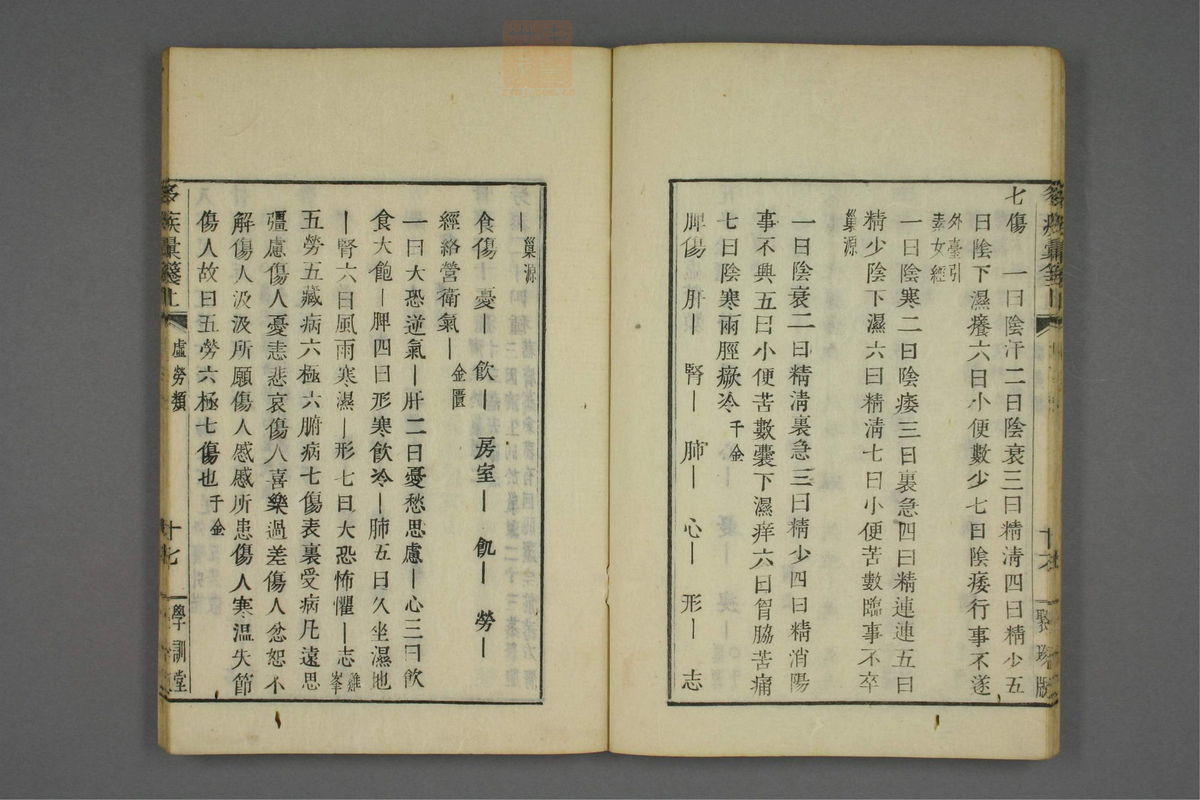 七傷　一曰陰汗二曰陰衰三曰精淸四曰精少五
曰陰下濕癢六曰小便數少七曰陰痿行事不遂
外臺引
素女經
一曰陰寒二曰陰痿三曰裏急四曰精連連五曰
精少陰下濕六曰精淸七曰小便苦數臨事不卒
巢源
一曰陰衰二曰精淸裏急三曰精少四曰精消陽
事不興五曰小便苦數囊下濕痒六曰胷脇苦痛
七曰陰寒兩脛厥冷 千金
脾傷　肝—　腎—　肺—　心—　形—　志
聚珍版
— 巢源
食傷　憂—　飲—　房室—　飢—　勞—
經絡營衛氣— 金匱
一曰大恐逆氣—肝二曰憂愁思慮—心三曰飲
食大飽—脾四曰形寒飲冷—肺五曰久坐濕地
—腎六曰風雨寒濕—形七曰大恐怖懼—志 雞峯
五勞五藏病六極六腑病七傷表裏受病凡遠思
彊慮傷人憂恚悲哀傷人喜樂過差傷人忿恕不
解傷人汲汲所願傷人慼慼所患傷人寒溫失節
傷人故曰五勞六極七傷也 千金
虛勞類
十七
學訓堂